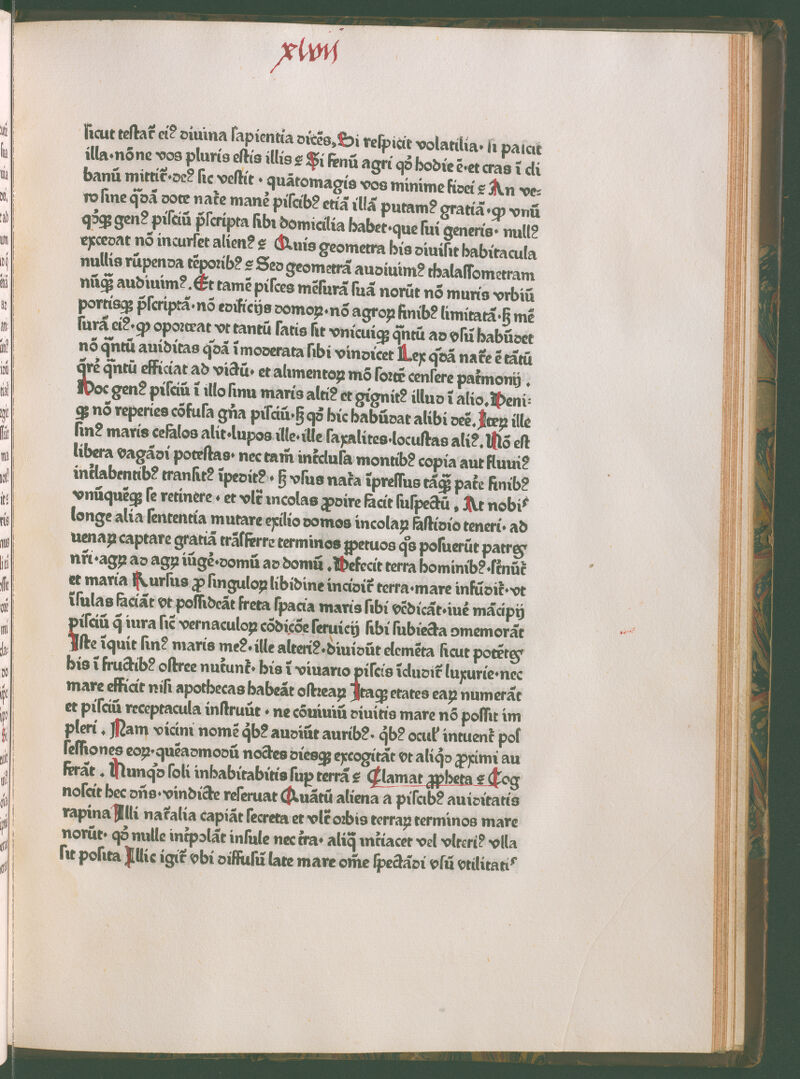 xlvii
sicut testat᷑ ei⁹ diuina sapientia dicēs, Si respicit volatilia· si pascit
illa·nōne vos pluris estis illis ⁊ Si fenū agri qd̄ hodie ē·et cras ī cli
banū mittit᷑·de⁹ sic vestit · quātomagis vos minime fidei ⁊ An ve⸗
ro sine q̄dā dote nat᷑e mane̅ piscib⁹ etiā illā putam⁹ gratiā·ꝙ vnū
qd̄qꝫ gen⁹ pisciū p̄scripta sibi domicilia habet·que sui generis· null⁹
excedat nō incurset alien⁹ ⁊ Quis geometra his diuisit habitacula
nullis rūpenda tēporib⁹ ⁊ Sed geometrā audiuim⁹ thalassometram
nūqꝫ audiuim⁹. Et tamē pisces mēsurā suā norūt nō muris vrbiū
portisqꝫ p̄scriptā·nō edificijs domoꝝ·nō agroꝝ finib⁹ limitatā·sꝫ mē
surā ei⁹·ꝙ oporteat vt tantū satis sit vnicuiqꝫ q̄ntū ad vsū habūdet
nō q̄ntū auiditas q̄dā īmoderata sibi vindicet Lex q̄dā nat᷑e ē tātū
q̄rē q̄ntū efficiat ad victū· et alimentoꝝ mō sort̄e censere pat᷑monij .
Hoc gen⁹ pisciū ī illo sinu maris alti⁹ et gignit⁹ illud ī alio. Deni⸗
qꝫ nō reperies cōfusa gn̄a pisciū·sꝫ qd̄ hic habūdat alibi deē. Iteꝝ ille
sin⁹ maris cefalos alit·lupos ille·ille saxalites·locustas ali⁹. Nō est
libera vagādi potestas· nec tam̄ int᷑clusa montib⁹ copia aut fluui⁹
int᷑labentib⁹ transit⁹ īpedit⁹ · sꝫ vsus nat᷑a īpressus tāqꝫ pat᷑e finib⁹
vnūquēqꝫ se retinere · et vlt᷑ incolas ꝓdire facit suspectū , At nobis
longe alia sententia mutare exilio domos incolaꝝ fastidio teneri· ad
uenaꝝ captare gratiā trāsferre terminos ꝑpetuos q̄s posuerūt patres
nr̄i·agꝝ ad agꝝ iūge̅·domū ad domū . Defecit terra hominib⁹·st᷑nūt᷑
et maria Rursus ꝓ singuloꝝ libidine incidit᷑ terra·mare infūdit᷑·vt
īsulas faciāt vt possideāt freta spacia maris sibi vēdicāt·iue̅ mācipij
pisciū q̄ iura sic̄ vernaculoꝝ cōdicōe seruicij sibi subiecta ɔmemorāt
Iste īquit sin⁹ maris me⁹·ille alteri⁹·diuidūt elemēta sicut potētes
his ī fructib⁹ ostree nut᷑unt᷑· his ī viuario piscis īcludit᷑ luxurie·nec
mare efficit nisi apothecas habeāt ostreaꝝ Itaqꝫ etates eaꝝ numerāt
et pisciū receptacula instruūt · ne cōuiuiū diuitis mare nō possit im
pleri . Nam vicini nomē q̄b⁹ audiūt aurib⁹· q̄b⁹ ocul᷑ intuent᷑ pos
sessiones eoꝝ·quēadmodū noctes diesqꝫ excogitāt vt aliq̄d ꝓximi au
ferāt . Nunq̄d soli inhabitabitis suꝑ terrā ⁊ Clamat ꝓpheta ⁊ Cog
noscit hec dn̄s·vindicte reseruat Quātū aliena a piscib⁹ auiditatis
rapina Illi nat᷑alia capiāt secreta et vlt᷑ orbis terraꝝ terminos mare
norūt· qd̄ nulle int᷑polāt insule nec t᷑ra· aliq̄ int᷑iacet vel vlteri⁹ vlla
sit posita Illic igit᷑ vbi diffusū late mare om̄e spectādi vsū vtilitatis